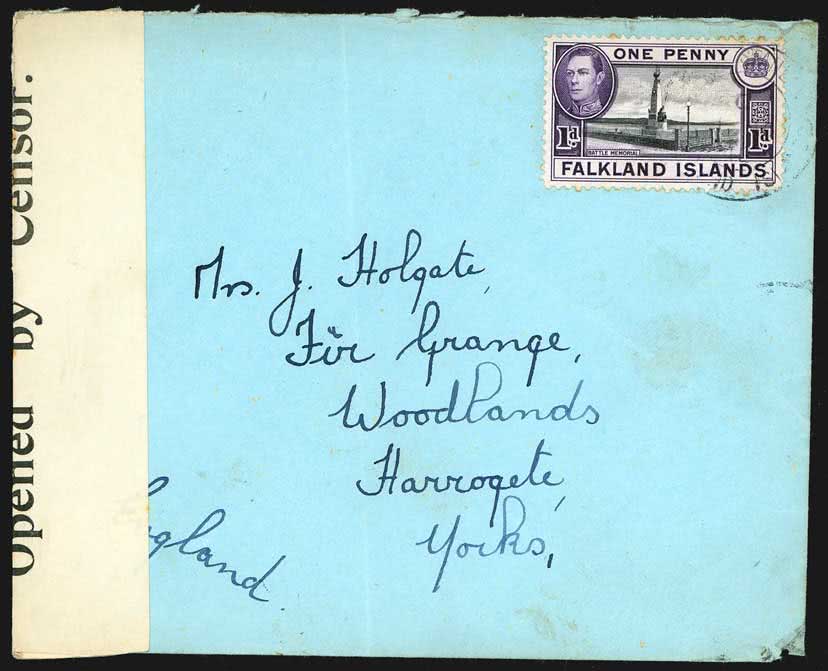 Opened by Censor.
ONE PENNY
1d 1d
BATTLE MEMORIAL
FALKLAND ISLANDS
Mrs. J. Holgate,
Fir Grange,
Woodlands
Harrogate,
Yorks,
gland.